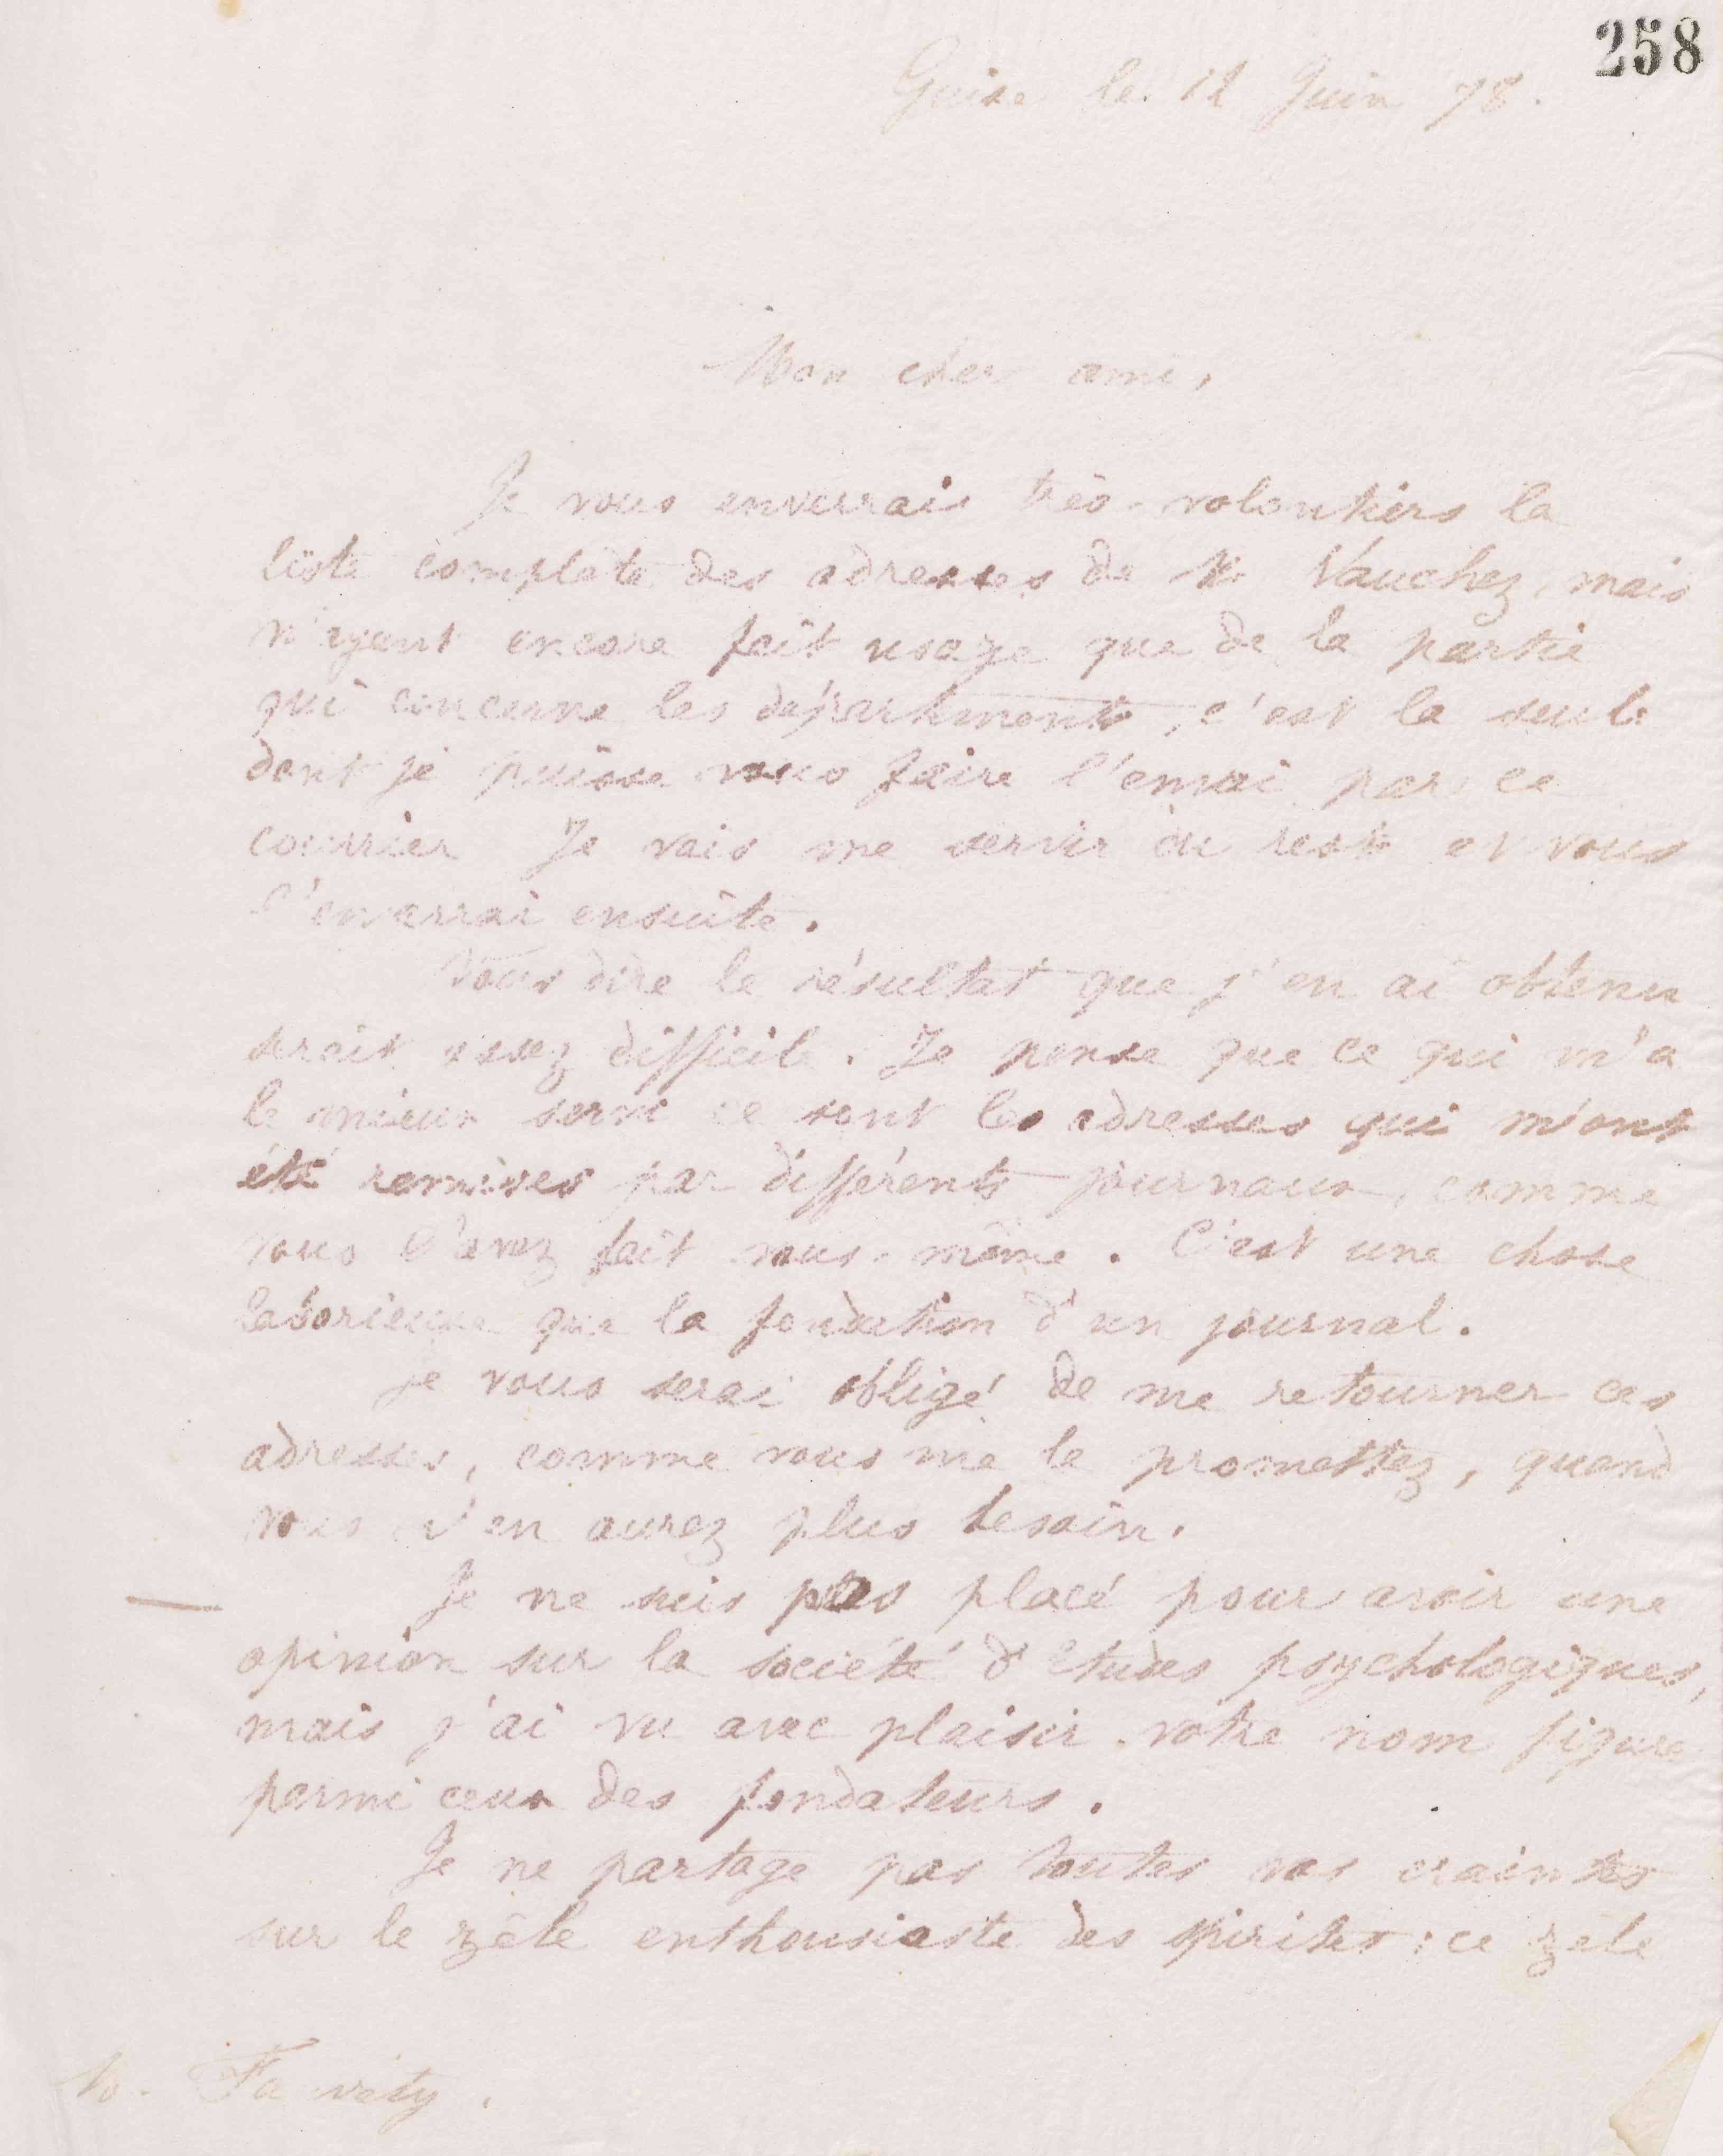 258
Guise le 12 Juin 78.
Mon cher ami,
Je vous enverrais très-volontiers la
liste complète des adresses de M. Vauchez, mais
n'ayant encore fait usage que de la partie
qui concerne les départements, c'est la seule
dont je puisse vous faire l'envoi par ce
courrier Je vais me servir du reste et vous
l'enverrai ensuite.
Vous dire le résultat que j'en ai obtenu
serait assez difficile. Je pense que ce qui m'a
le mieux servi ce sont les adresses qui m'ont
été remises par différents journaux, comme
vous l'avez fait vous-même. C'est une chose
laborieuse que la fondation d'un journal.
Je vous serai obligé de me retourner ces
adresses, comme vous me le promettez, quand
vous n'en aurez plus besoin.
Je ne suis pas placé pour avoir une
opinion sur la société d'études psychologiques,
mais j'ai vu avec plaisir votre nom figure
parmi ceux des fondateurs.
Je ne partage pas toutes vos craintes
sur le zèle enthousiaste des spirites : ce zèle
M. Fauvety.